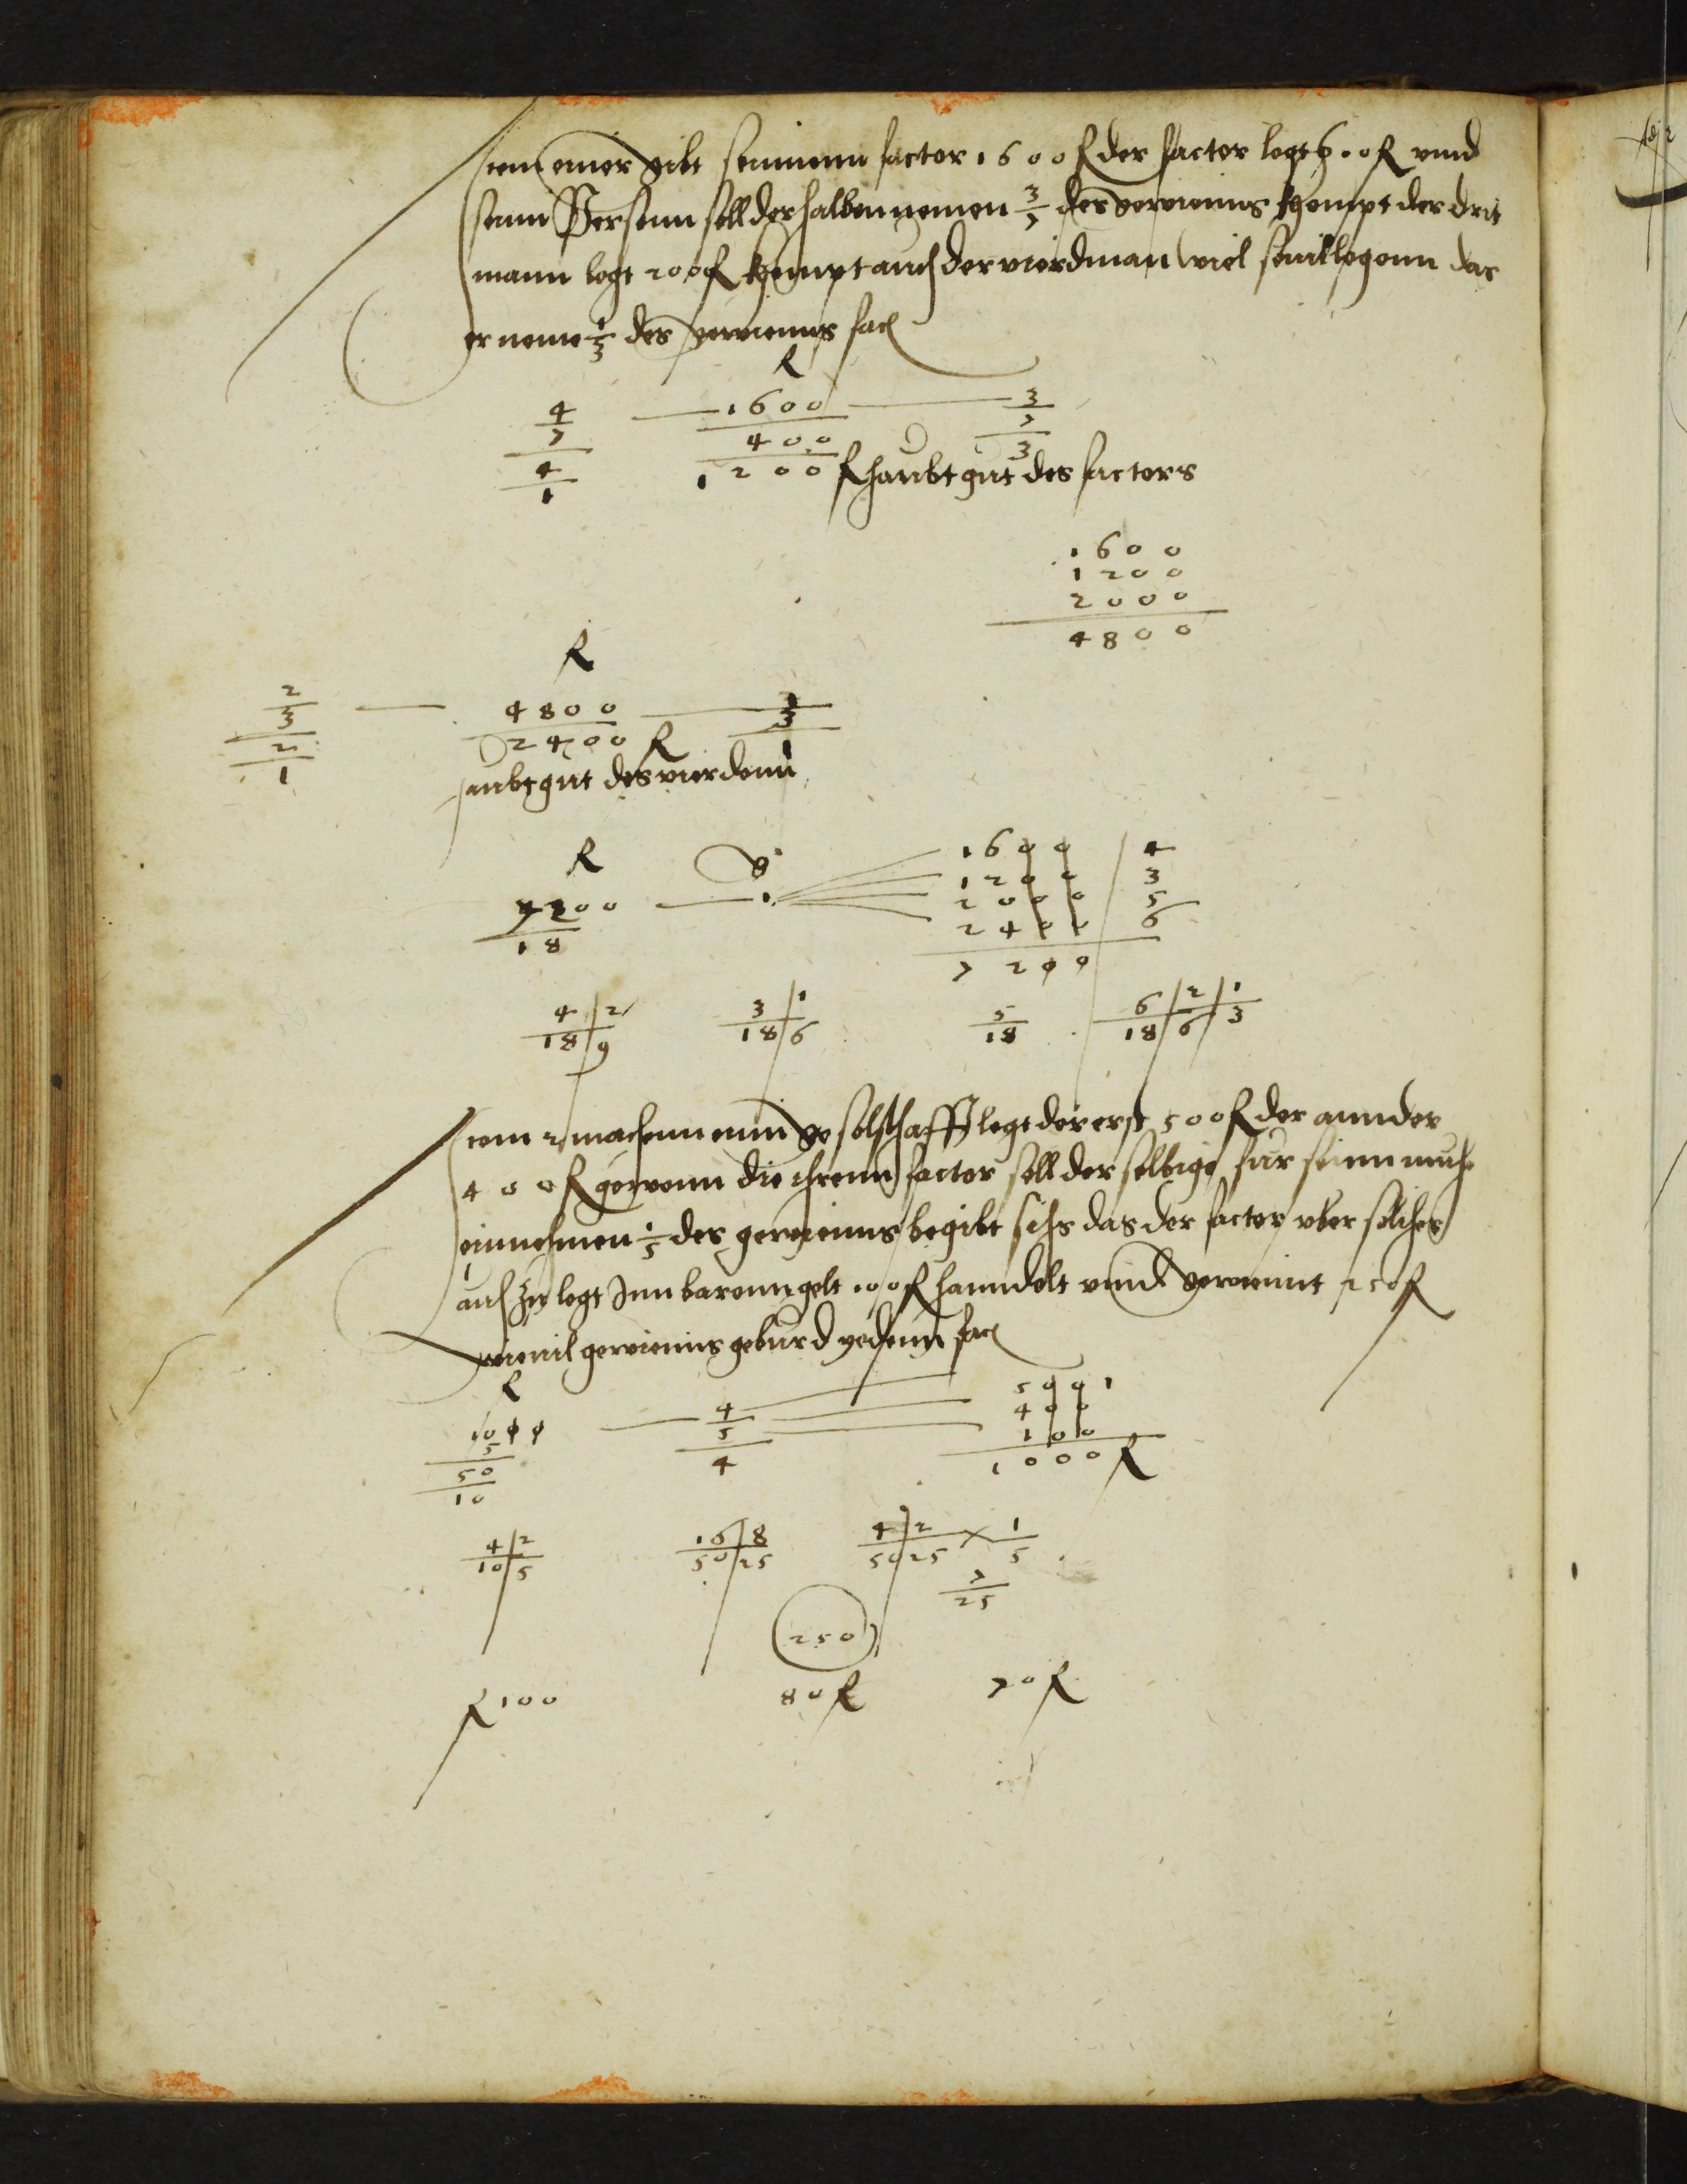 Item einer gibt seinnem factor 1600 fl der factor legt 600 fl vnnd
sein Person soll derhalben nemen 3/7 des gewiennis Khompt der drit
mann legt 2000 fl Khompt auch der vierd man wiel souil legenn das
er neme 1/3 des gewiennis fac
fl
4/7 — 1600 — 3/7
4 400 3
1 1200 fl haubtgut des factors
1600
1200
2000
4800
fl
2/3 — 4800 — 1/3
2 2400 fl 1
1
haubtgut des vierdenn
fl g
7200 — 1 1600 4
18 1200 3
2000 5
2400 6
7200
4/18 2/9 3/18 1/6 5/18 6/18 2/6 1/3
Item 2 machenn ein geselschafft legt der erst 500 fl der annder
400 fl gewenn die ihrenn factor soll der selbige fur seinn muhe
einnehmen 1/5 des gewiennis begibt sichs das der factor vber solches
auch zu legt Inn barenn gelt 100 fl hanndelt vnnd gewinnt 250 fl
wieuil gewiennis geburd yedenn fac
fl
1000 — 4/5 500 1
5 4 400
50 100
10 1000 fl
4/10 2/5 16/50 8/25 4/50 2/25 × 1/5
7/25
250
fl 100 80 fl 70 fl